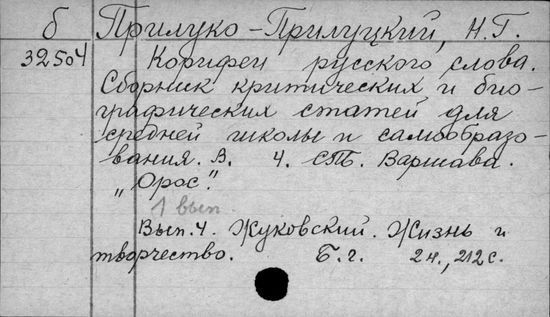 б Прилуко-Прилуцкий, Н.Г.
32504 Корифеи русского слова.
Сборник критических и био-
графических статей для
средней школы и самообразо-
вания. В. 4. СТб. Варшава.
„Орос".
1 вып.
Вып. 4. Жуковский. Жизнь и
творчество. Б.г. 2н., 212 с.